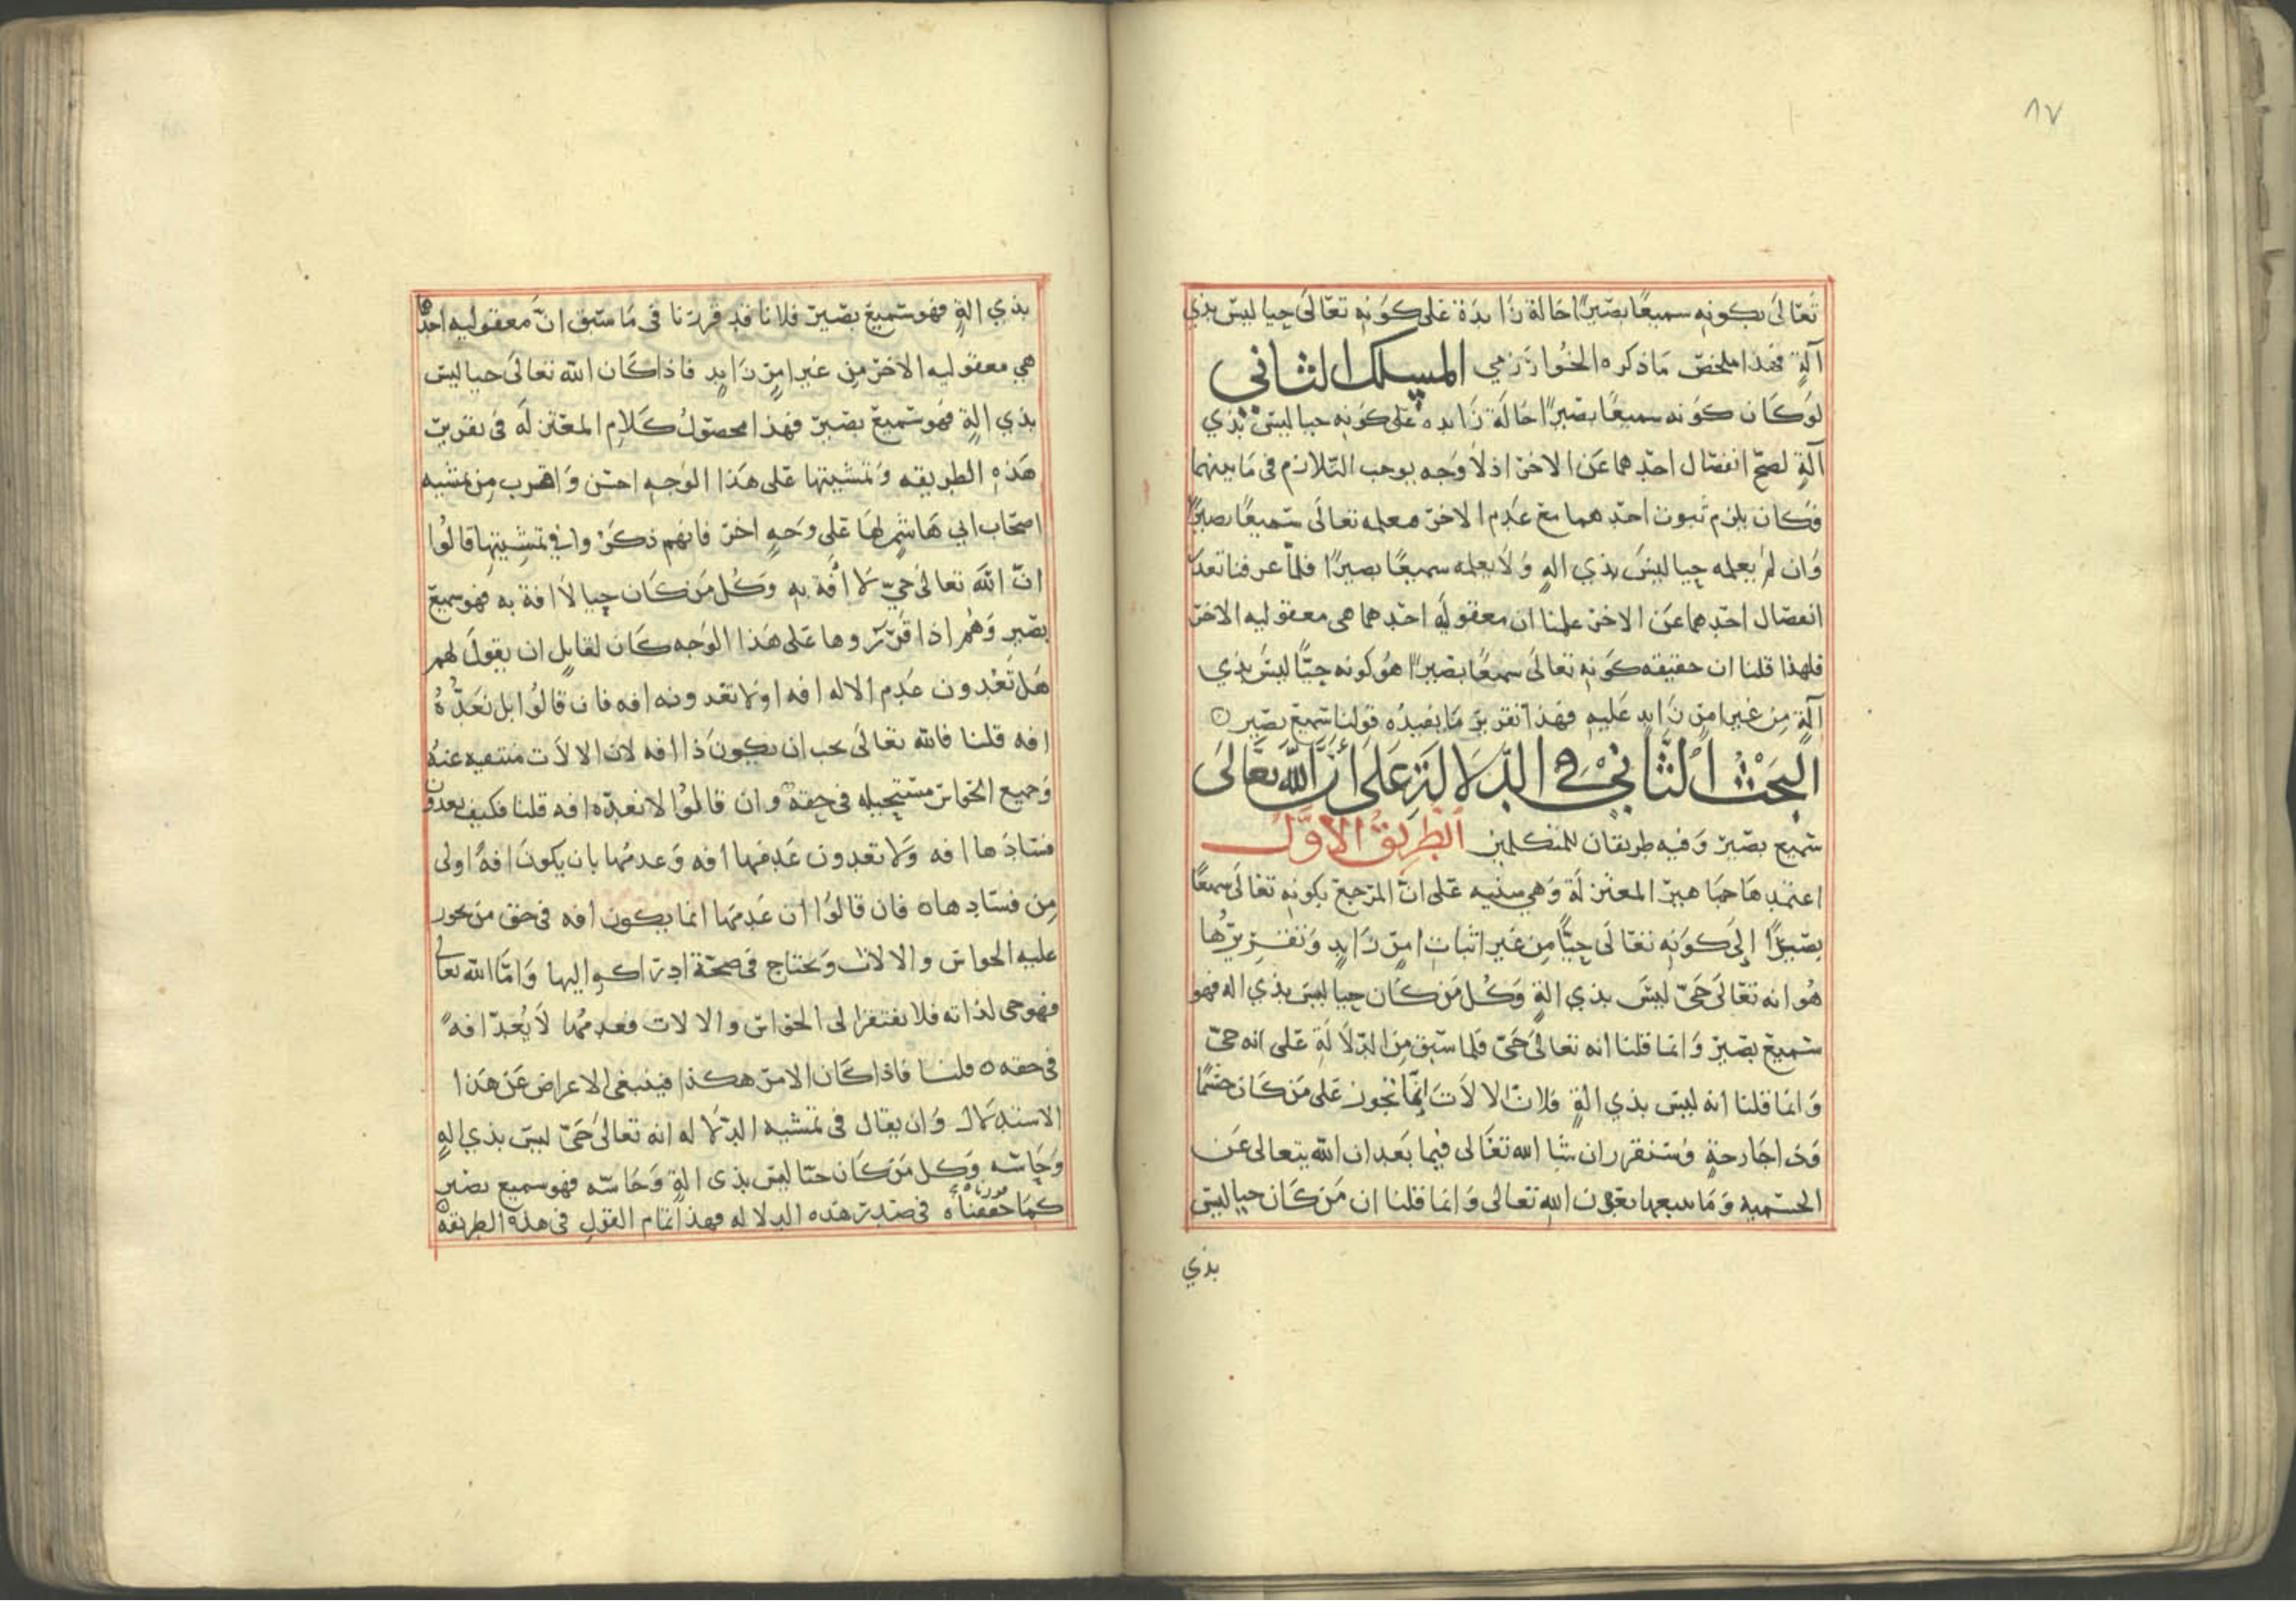 ٨٧
تعالى بكونه سميعًا بصيرًا حالة زايدة على كونه تعالى حيا ليس بذي
آلةٍ فهذا ملخص ما ذكره الخوارزمي المسلك الثاني
لو كان كونه سميعًا بصيرًا حالة زايده على كونه حيا ليس بذي
آلةٍ لصح انفصال احدهما عن الاخر اذ لا وجه يوجب التلازم في ما بينهما
فكان يلزم ثبوت احدهما مع عدم الاخر فعلمه تعالى سميعًا بصيرًا
وان لم يعلمه حيا ليس بذي الهٍ ولا يعلمه سميعًا بصيرًا فلما عرفنا تعذر
انفصال احدهما عن الاخر علمنا ان معقوليه احدهما هي معقوليه الاخر
فلهذا قلنا ان حقيقه كونه تعالى سميعًا بصيرًا هو كونه حيًّا ليس بذي
آلةٍ من غير امرٍ زايدٍ عليه فهذا تقرير ما يفيده قولنا سميع بصير ۞
البحث الثاني في الدلالة على أن الله تعالى
سميع بصير وفيه طريقان للمتكلمين الطريق الأول
اعتمدها جماهير المعتزلة وهي مبنيه على ان المرجع بكونه تعالى سميعًا
بصيرًا إلى كونه تعالى حيًّا من غير اثبات امرٍ زايدٍ وتقريرها
هو انه تعالى حي ليس بذي الةٍ وكل من كان حيا ليس بذي اله فهو
سميع بصير وانما قلنا انه تعالى حي فلما سبق من الدلالة على انه حي
وانما قلنا انه ليس بذي الةٍ فلان الالات إنما تجوز على من كان جسمًا
وذا جارحةٍ وسنقرر ان شا الله تعالى فيما بعد ان الله يتعالى عن
الجسميه وما يتبعها بعون الله تعالى وانما قلنا ان من كان حيا ليس
بذي
بذي الةٍ فهو سميع بصير فلانا قد قررنا في ما سبق ان معقوليه احدهما
هي معقوليه الاخر من غير امرٍ زايدٍ فاذا كان الله تعالى حيا ليس
بذي الةٍ فهو سميع بصير فهذا محصول كلام المعتزله في تقرير
هذه الطريقه وتمشيتها على هذا الوجه احسن واقرب من تمشيه
اصحاب ابي هاشم لها على وجهٍ اخر فانهم ذكروا في تمشيتها قالوا
ان الله تعالى حي لا آفة به وكل من كان حيا لا افة به فهو سميع
بصير وهم اذا قرروها على هذا الوجه كان لقايل ان يقول لهم
هل تعدون عدم الاله افه او لا تعدونه افه فان قالوا بل نعده
افه قلنا فالله تعالى يجب ان يكون ذا افه لان الالات منتفيه عنه
وجميع الحواس مستحيله في حقه وان قالوا لا نعده افه قلنا فكيف يعدون
فسادها افه ولا تعدون عدمها افه وعدمها بان يكون افةً اولى
من فسادها ٥ فان قالوا ان عدمها انما يكون افه في حق من يجوز
عليه الحواس والالات ويحتاج في صحة ادراكه اليها واما الله تعالى
فهو حي لذاته فلا يفتقر الى الحواس والالات فعدمها لا يعد افةً
في حقه ٥ قلنا فاذا كان الامر هكذا فينبغي الاعراض عن هذا
الاستدلال وان يقال في تمشيه الدلاله انه تعالى حي ليس بذي الهٍ
وحاسه وكل من كان حيا ليس بذي الةٍ وحاسه فهو سميع بصير
كما حققناه في صدر هذه الدلاله فهذا تمام القول في هذه الطريقه